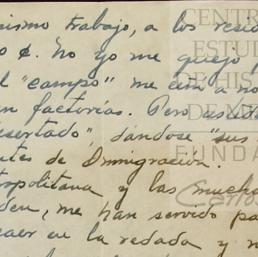 mismo trabajo, a los resid
o ¢. No yo me quejo p
l "campo" me
n factorías. Pero
sertado", dándose "sus
tes de Inmigración.
tropolitana y las mucha
den, me han servido pa
aer en la redada y n
CENTRO
ESTUDI
DE HISTO
DE M
FUNDA
Carlos